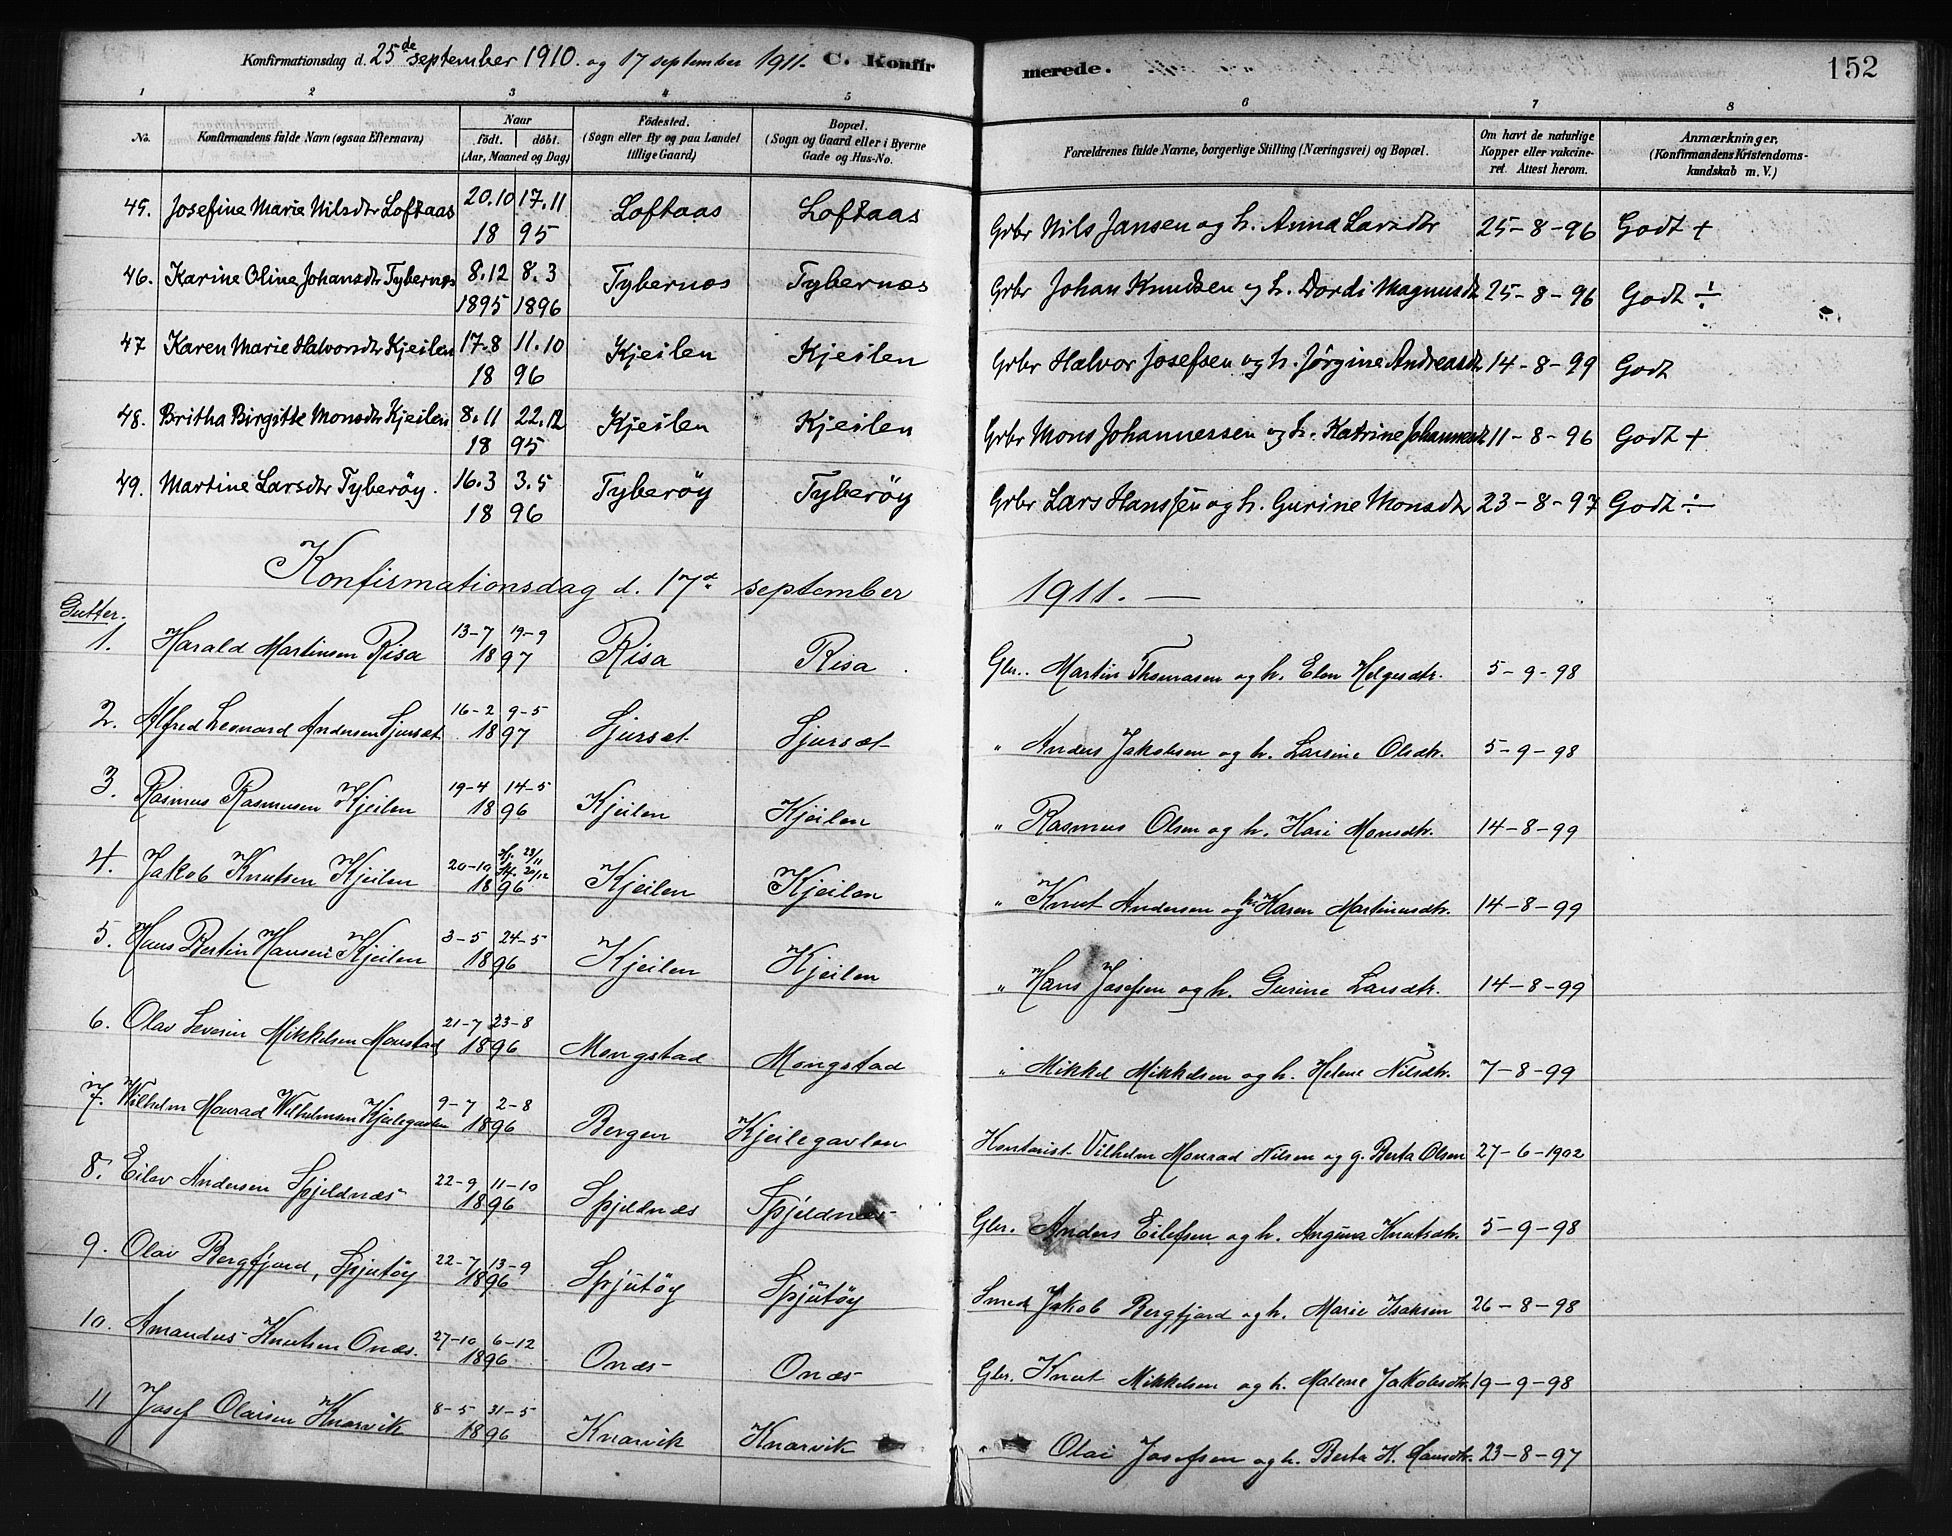 Konfirmationsdag d. 25de september 1910. og 17 september 1911. C. Konfirmerede. 152
1 2 3 4 5 6 7 8
No. Konfirmandens fulde Navn (ogsaa Efternavn) Naar født. døbt. (Aar, Maaned og Dag) Födested. (Sogn eller By og paa Landet tillige Gaard) Bopæl. (Sogn og Gaard eller i Byerne Gade og Hus-No. Forældrenes fulde Navne, borgerlige Stilling (Næringsvei) og Bopæl. Om havt de naturlige Kopper eller vakcineret. Attest herom. Anmærkninger. (Konfirmandens Kristendomskundskab m. V.)
45. Josefine Marie Nilsdtr Loftaas 20.10 17.11 1895 Loftaas Loftaas Grbr Nils Jansen og h. Anna Larsdtr 25-8-96 Godt +
46. Karine Oline Johansdtr Tybernes 8.12 1895 8.3 1896 Tybernæs Tybernæs Grbr Johan Knudsen og h. Dordi Magnusdt 25-8-96 Godt ÷
47 Karen Marie Halvorsdtr Kjeilen 17.8 11.10 1896 Kjeilen Kjeilen Grbr Halvor Josefsen og h. Jörgine Andreasdt 14-8-99 Godt
48. Britha Birgitte Monsdtr Kjeilen 8.11 22.12 1895 Kjeilen Kjeilen Grbr Mons Johannessen og h. Katrine Johannesdt 11-8-96 Godt +
49. Martine Larsdtr Tyberöy. 16.3 3.5 1896 Tyberöy Tyberöy Grbr Lars Hanssen og h. Gurine Monsdtr 23-8-97 Godt ÷
Konfirmationsdag d. 17d september 1911. —
Gutter.
1. Harald Martinsen Risa 13-7 19-9 1897 Risa Risa Gbr. Martin Thomasen og h. Elen Helgesdtr. 5-9-98
2. Alfred Leonard Andersen Sjurset 16-2 9-5 1897 Sjurset Sjurset " Anders Jakobsen og h. Larsine Olsdtr. 5-9-98
3. Rasmus Rasmusen Kjeilen 19-4 14-5 1896 Kjeilen Kjeilen " Rasmus Olsen og h. Kari Monsdtr. 14-8-99
4. Jakob Knutsen Kjeilen 20-10 Hj. 23/11 St. 20/12 1896 Kjeilen Kjeilen " Knut Andersen og h. Karen Martinusdtr. 14-8-99
5. Hans Bertin Hansen Kjeilen 3-5 24-5 1896 Kjeilen Kjeilen " Hans Josefsen og h. Gurine Larsdtr. 14-8-99
6. Olav Severin Mikkelsen Monstad 21-7 23-8 1896 Mongstad Mongstad " Mikkel Mikkelsen og h. Helene Nilsdtr. 7-8-99
7. Wilhelm Monrad Wilhelmsen Kjeilegavlen 9-7 2-8 1896 Bergen Kjeilegavlen Kontorist Vilhelm Monrad Nilsen og g. Berta Olsen 27-6-1902
8. Eilev Andersen Spjeldnæs 22-9 11-10 1896 Spjeldnæs Spjeldnæs Gbr. Anders Eilefsen og h. Anguna Knutsdtr. 5-9-98
9. Olai Bergfjord, Spjutöy 22-7 13-9 1896 Spjutöy Spjutöy Smed Jakob Bergfjord og h. Marie Isaksen 26-8-98
10. Amandus Knutsen Onæs. 27-10 6-12 1896 Onæs Onæs Gbr. Knut Mikkelsen og h. Malene Jakobsdtr. 19-9-98
11 Josef Olaisen Knarvik 8-5 31-5 1896 Knarvik Knarvik " Olai Josefsen og h. Berta K. Hansdtr. 23-8-97